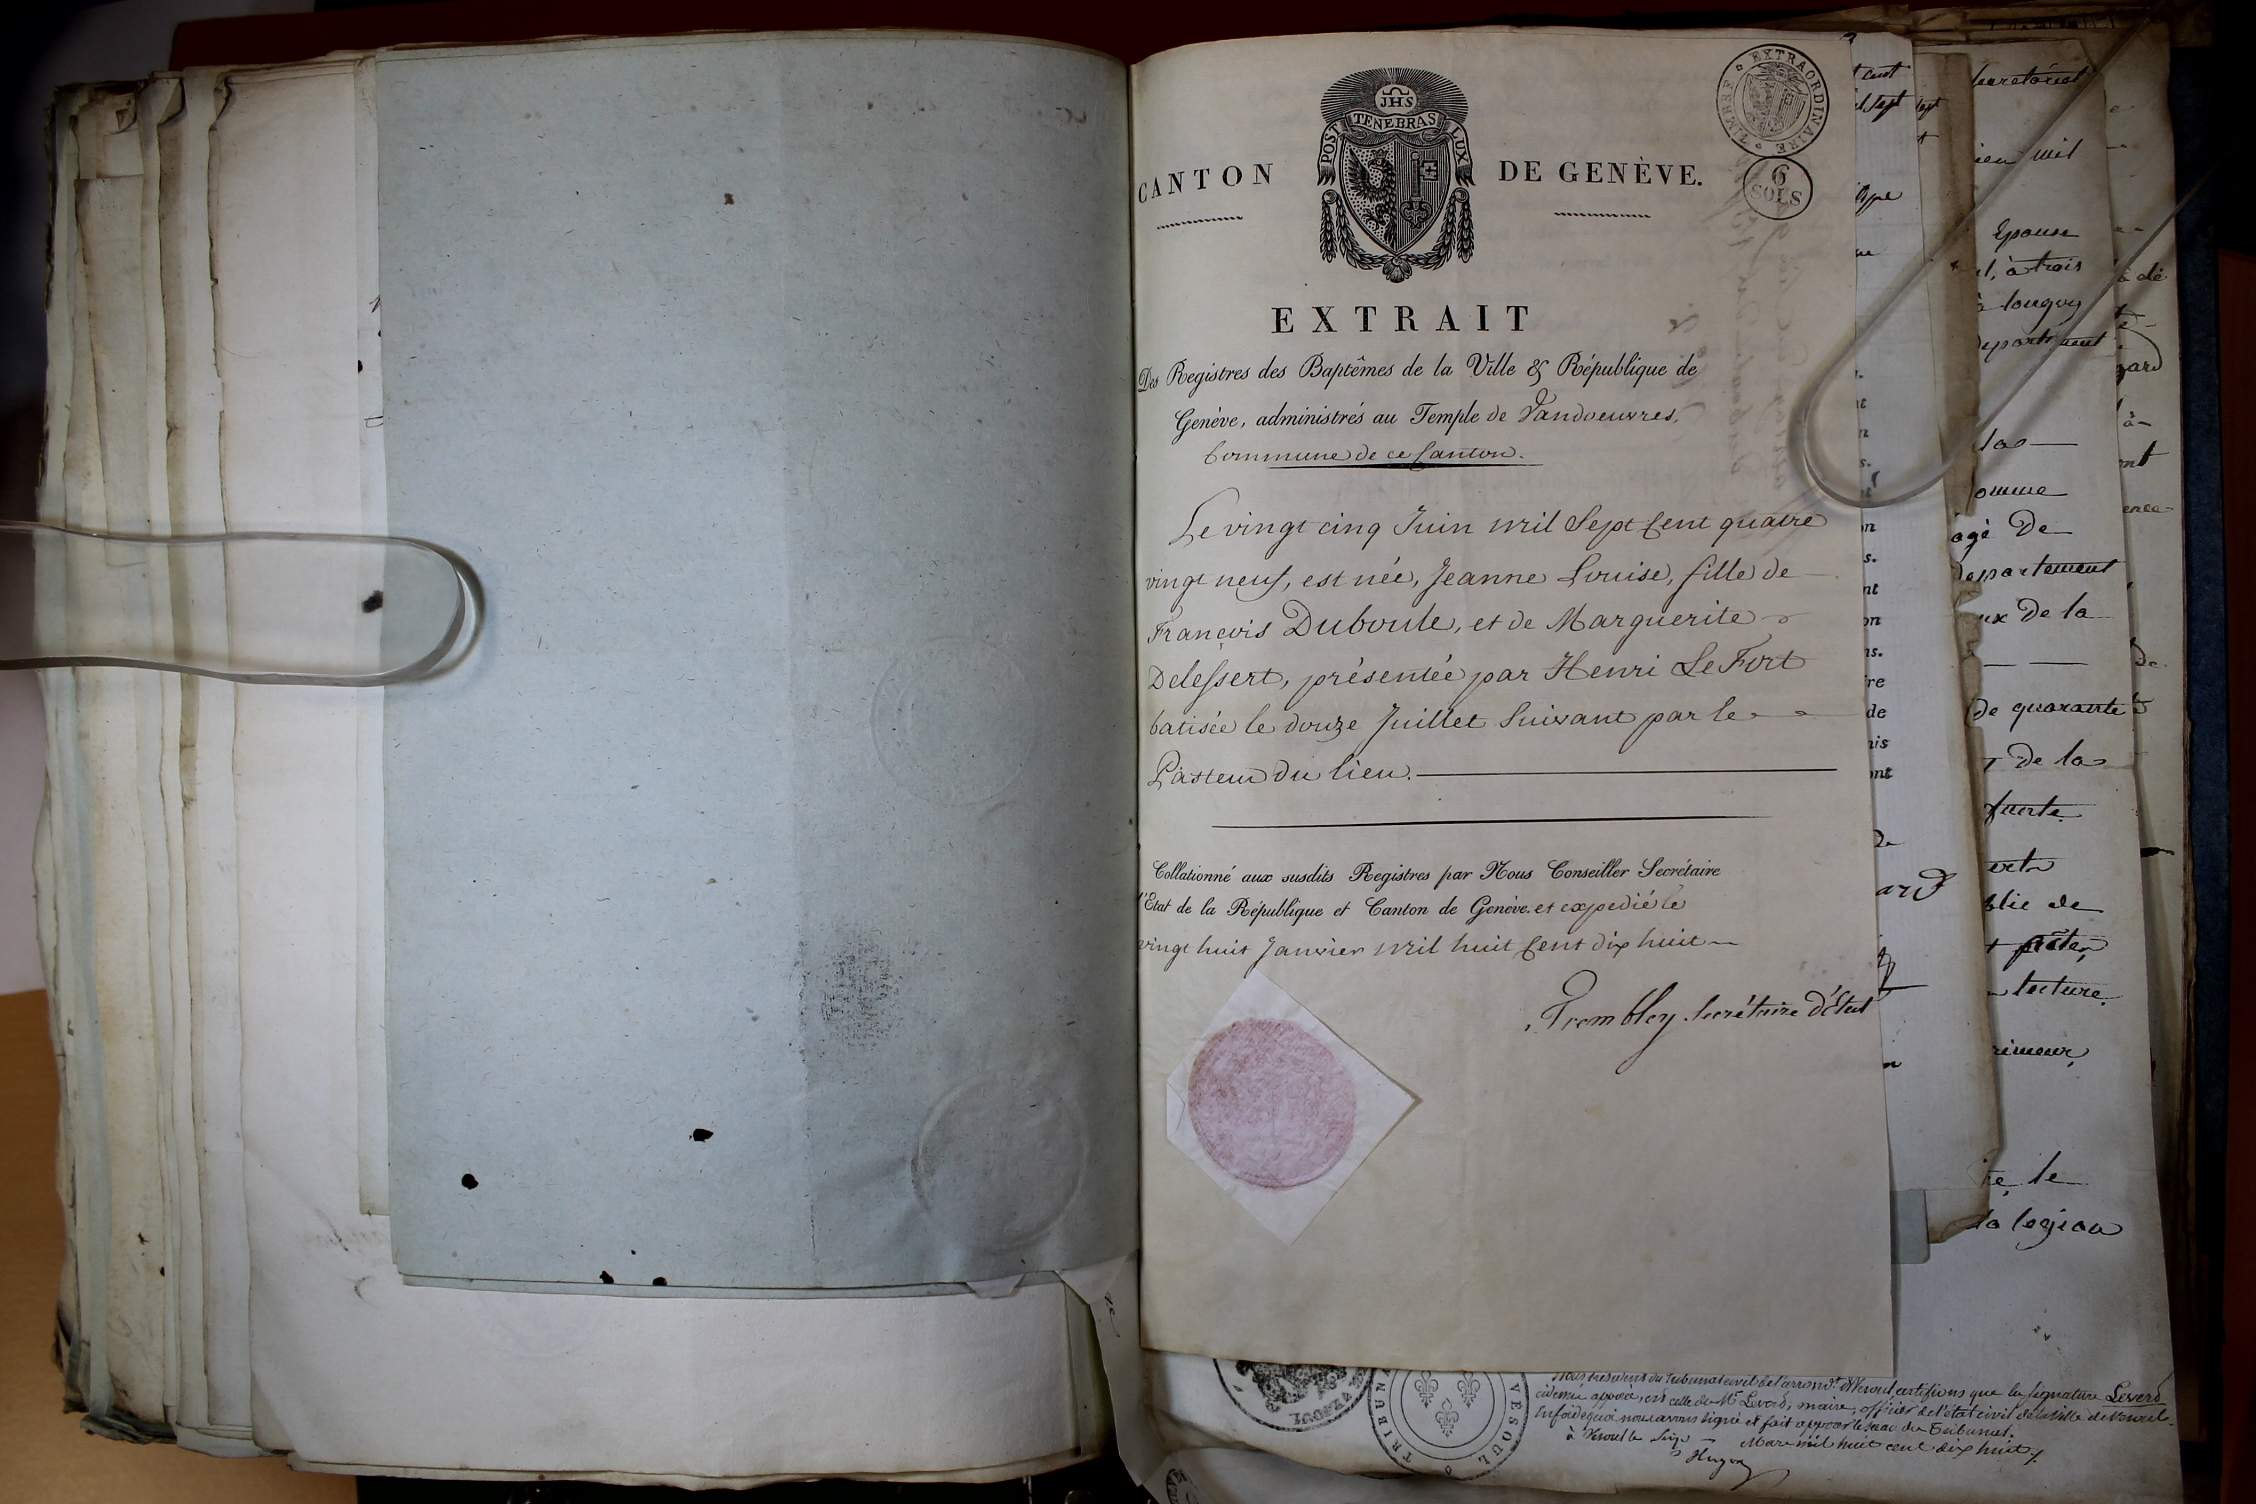 JHS
POST TENEBRAS LUX
CANTON DE GENÈVE.
TIMBRE EXTRAORDINAIRE
6
SOLS
EXTRAIT
Des Registres des Baptêmes de la Ville & République de
Genève, administrés au Temple de Vandoeuvres,
Commune de ce Canton.
Le vingt cinq Juin mil Sept Cent quatre
vingt neuf, est née, Jeanne Louise, fille de
François Duboule, et de Marguerite
Delessert, présentée par Henri Le Fort
batisée le douze Juillet Suivant par le
Pasteur du lieu.
Collationné aux susdits Registres par Nous Conseiller Secrétaire
d'Etat de la République et Canton de Genève. et expedié le
vingt huit Janvier mil huit Cent dix huit
Trembley Secrétaire d'Etat
Secretariat
mil
Epouse
à trois
à longwy
las
omme
agé De
Departement
ux De la
De quarante
De la
lecture
le
la legion
Nous President du Tribunal civil de l'arrond.t de Vesoul certifions que la signature Levers
cidessus apposée, est celle de Mr Levers, maire, officier de l'etat civil de la ville de Vesoul.
En foi de quoi nous avons signé et fait apposer le sceau du Tribunal.
à Vesoul le Six Mars mil huit cent dix huit
Hugon
TRIBUN VESOUL